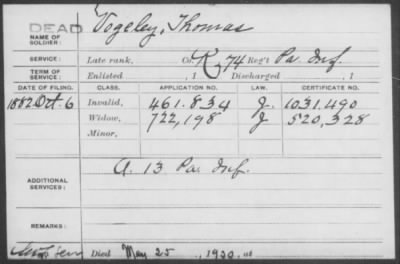 DEAD
NAME OF SOLDIER: Vogeley, Thomas
SERVICE: Late rank, Co. K, 74 Reg't Pa. Inf.
TERM OF SERVICE: Enlisted , 1 Discharged , 1
DATE OF FILING. CLASS. APPLICATION NO. LAW. CERTIFICATE NO.
1882 Oct. 6 Invalid, 461.834 J. 1031.490
Widow, 722,198 J 520,328
Minor,
ADDITIONAL SERVICES: A. 13 Pa. Inf.
REMARKS:
Died May 25, 1920